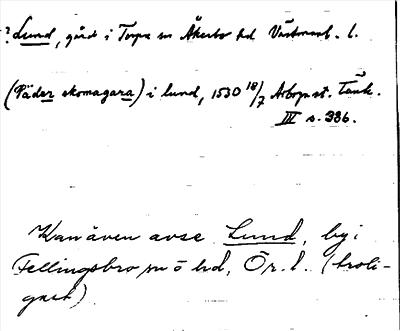 ? Lund, gård i Torpa sn Åkerbo hd Västmanl. l.
(Päder skomagara) i lund, 1530 18/7 Arbogast. Tänk.
III s. 336.
Kan även avse Lund, by i
Fellingsbro sn ö hd, Ör. l. (troli-
gast)